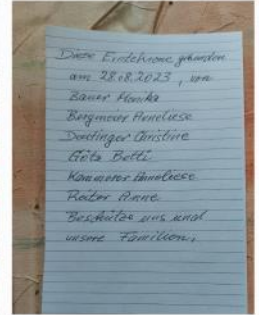 Diese Erntekrone gebunden
am 28.08.2023, von
Bauer Monika
Bergmeier Anneliese
Christine
Götz Betti
Kammerer Anneliese
Reiter Anne
Beschütze uns und
unsere Familien,